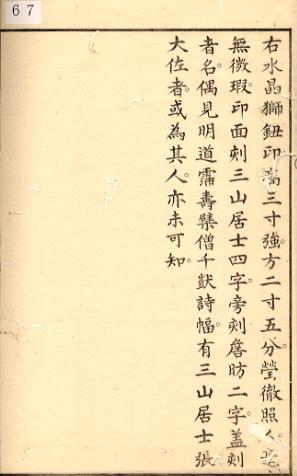 67
右水晶獅鈕印。高三寸強。方二寸五分。瑩徹照人。
無微瑕。印面刻三山居士四字。旁刻詹昉二字。蓋刻
者名。偶見明道霈壽僧千猷詩幅。有三山居士張
大佐者。或為其人。亦未可知。